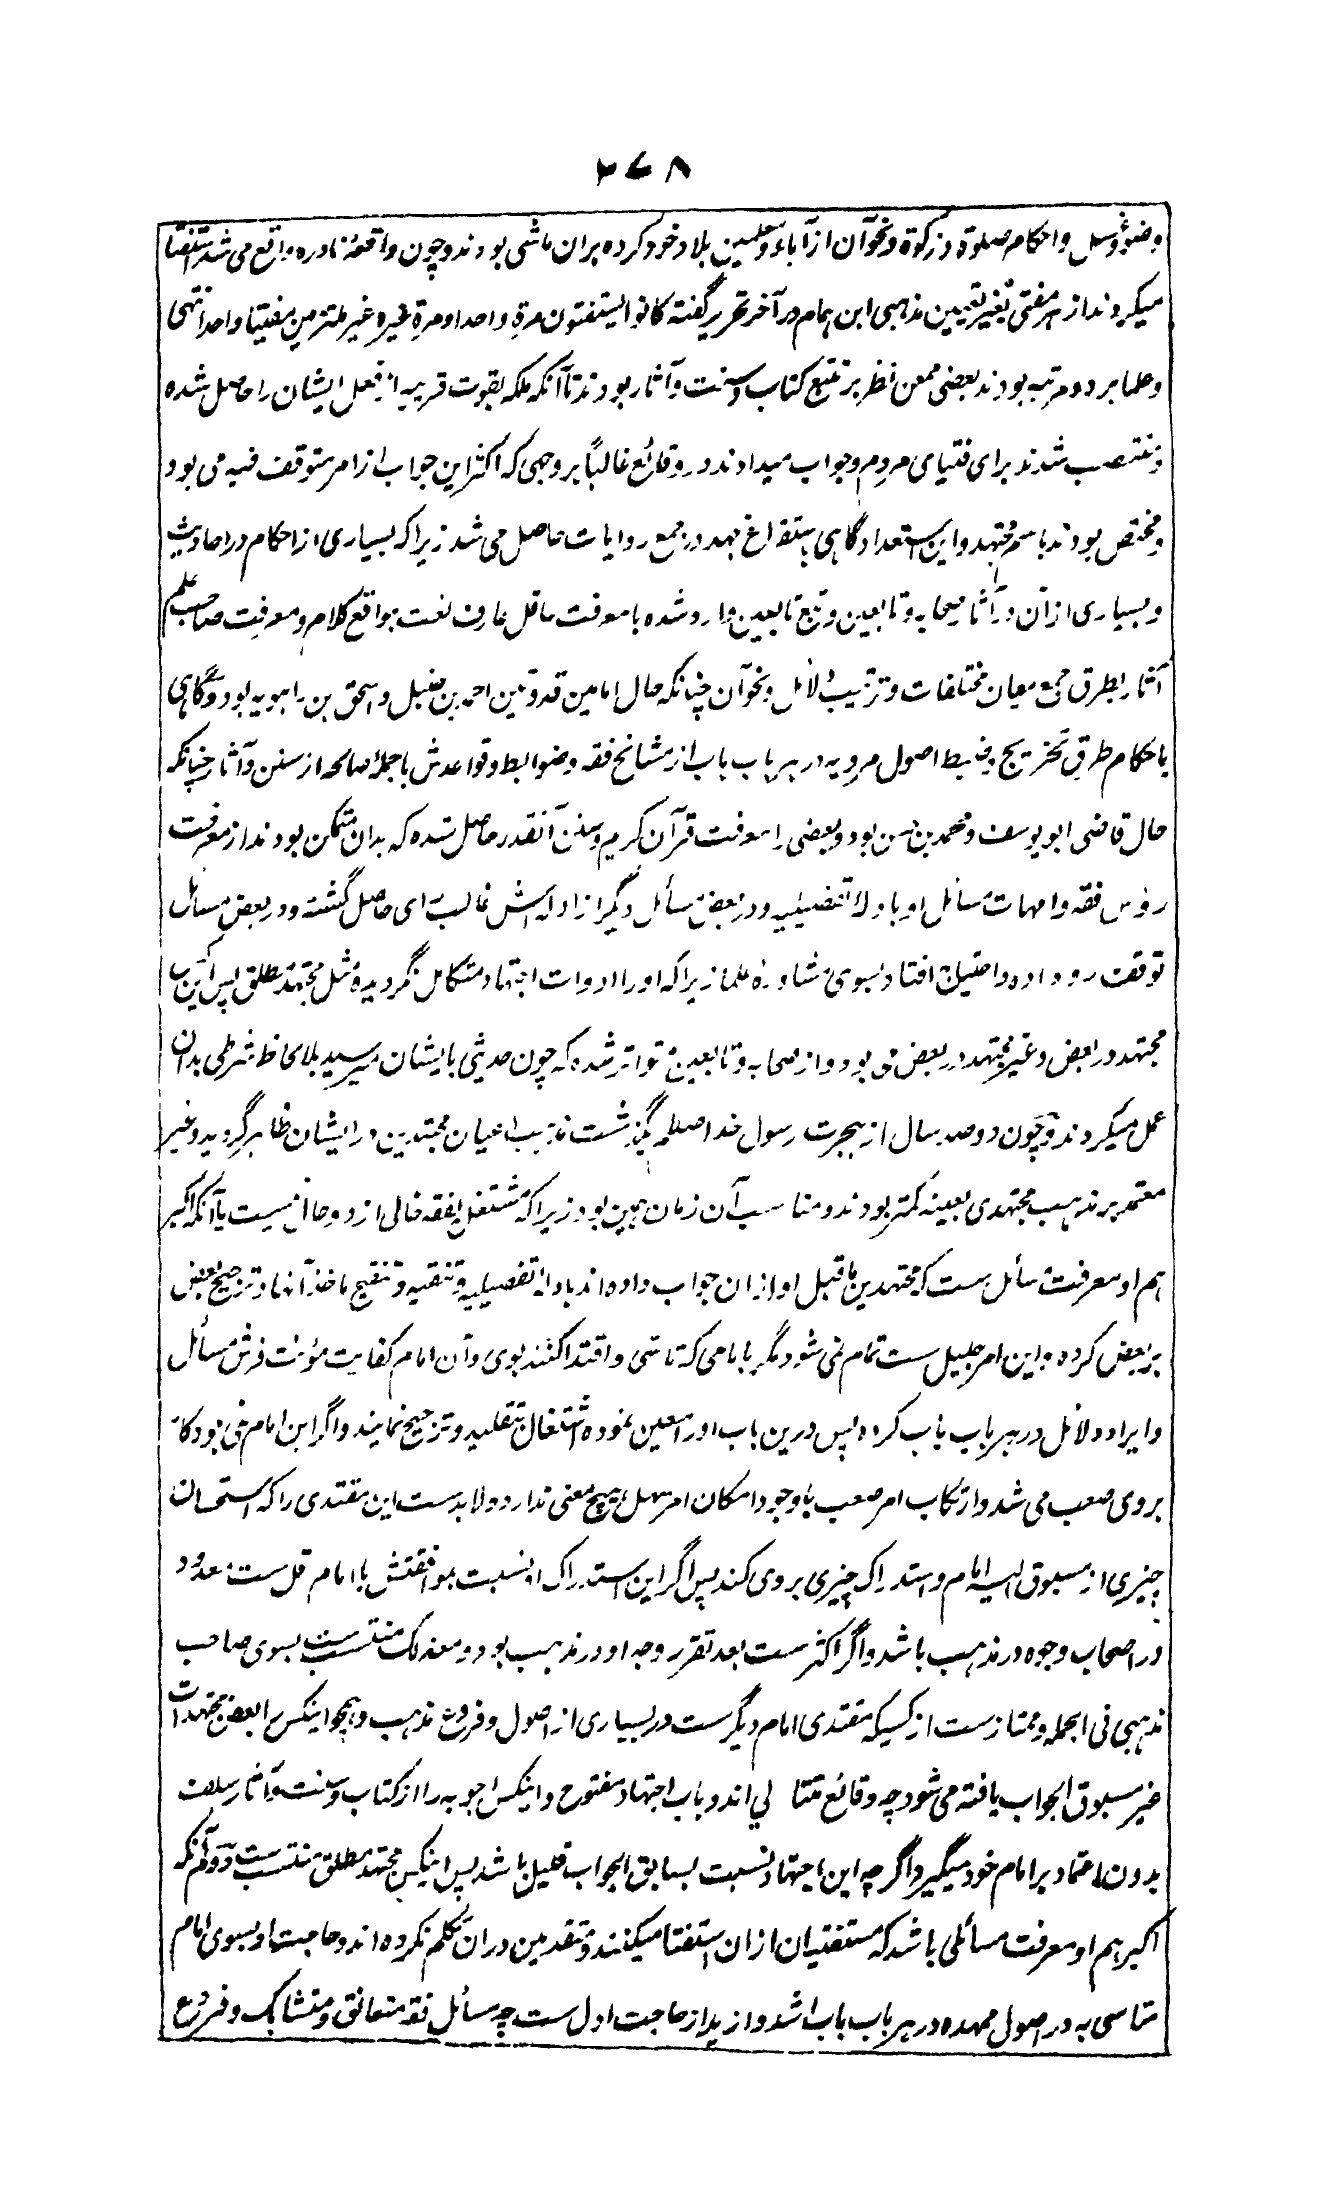 ۲۶۸
وضو و غسل و احکام صلوة و زکوة و نحو آن از آباء و معلمین بلاد خود کرده بران ماشی بودند و چون واقعهٔ نادره واقع می شد استفتا
میکردند از هر مفتی بغیر تعیین مذهبی ابن همام در آخر تحریر گفته کانوا یستفتون مرة واحدا و مرة غیره غیر ملتزمین مفتیا واحدا انتهی
و علما بر دو مرتبه بودند بعضی ممعن نظر بر تتبع کتاب و سنت و آثار بودند تا آنکه ملکه بقوت قریبه از فعل ایشان را حاصل شده
و منتصب شدند برای فتیای مردم و جواب میدادند در وقائع غالباً بروجهی که اکثر این جواب از امر متوقف فیه می بود
و مختص بودند باسم مجتهد و این استعداد گاهی باستفراغ جهد در جمع روایات حاصل می شد زیرا که بسیاری از احکام در احادیث
و بسیاری از آن در آثار صحابه و تابعین و تبع تابعین وارد شده با معرفت عاقل عارف لغت بمواقع کلام و معرفت صاحب علم
آثار بطرق جمع میان مختلفات و ترتیب دلائل و نحو آن چنانکه حال امامین قدوتین احمد بن حنبل و اسحق بن راهویه بود و گاهی
باحکام طرق تخریج و ضبط اصول مرویه در هر باب باب از مشائخ فقه و ضوابط و قواعدش با جملهٔ صالحه از سنن و آثار چنانکه
حال قاضی ابو یوسف و محمد بن حسن بود و بعضی را معرفت قرآن کریم و سنن آنقدر حاصل شده که بدان متمکن بودند از معرفت
رؤس فقه و امهات مسائل او بادلهٔ تفضیلیه و در بعض مسائل دیگر از ادله اش غالب رای حاصل گشته و در بعض مسائل
توقف رو داده و احتیاج افتاد بسوی مشاوره علما زیرا که او را ادوات اجتهاد متکامل نگردیده مثل مجتهد مطلق پس این کس
مجتهد در بعض و غیر مجتهد در بعض می بود و از صحابه و تابعین متواتر شده که چون حدیثی بایشان میرسید بلا لحاظ شرطی بدان
عمل میکردند و چون دو صد سال از هجرت رسول خدا صلعم بگذشت مذهب اعیان مجتهدین در ایشان ظاهر گردید و غیر
معتمد بر مذهب مجتهدی بعینه کمتر بودند و مناسب آن زمان همین بود زیرا که مشتغل بفقه خالی از دو حال نیست یا آنکه اکبر
هم او معرفت مسائل ست که مجتهدین ماقبل او ازان جواب داده اند بادلهٔ تفصیلیه و تنقیه و تنقیح ماخذ آنها و ترجیح بعض
بر بعض کرده و این امر جلیل ست تمام نمی شود مگر بامامی که تاسی و اقتدا کنند بوی و آن امام کفایت مؤنت فرش مسائل
و ایراد دلائل در هر باب باب کرده پس درین باب او را معین نموده اشتغال بتقلید و ترجیح نمایند و اگر این امام نمی بود کار
بروی صعب می شد و ارتکاب امر صعب با وجود امکان امر سهل هیچ معنی ندارد و لا بد ست این مقتدی را که استحسان
چیزی از مسبوق الیه امام و استدراک چیزی بروی کند پس اگر این استدراک او نسبت بموافقتش با امام قل ست معدود
در اصحاب وجوه در مذهب باشد و اگر اکثر ست بعد تقرر وجه او در مذهب بود و معذلک منتسب ست بسوی صاحب
مذهبی فی الجمله و ممتاز ست از کسیکه مقتدی امام دیگر ست در بسیاری از اصول و فروع مذهب و همچو اینکس را بعض مجتهدات
غیر مسبوق الجواب یافته می شود چه وقائع متتالی اند و باب اجتهاد مفتوح و اینکس اجوبه را از کتاب و سنت و آثار سلف
بدون اعتماد بر امام خود میگیرد اگرچه این اجتهاد نسبت بسابق الجواب قلیل باشد پس اینکس مجتهد مطلق منتسب ست دوم آنکه
اکبر هم او معرفت مسائلی باشد که مستفتیان ازان استفتا میکنند و متقدمین دران تکلم نکرده اند و حاجت او بسوی امام
متاسی به در اصول ممهده در هر باب باب اشد و ازید از حاجت اول ست چه مسائل فقه متعانق و متشابک و فروع